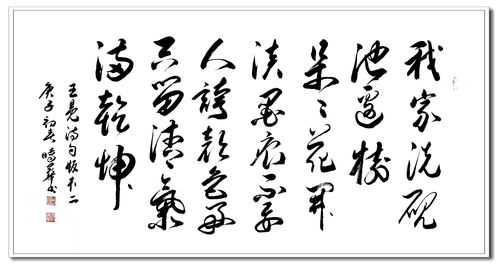 我家洗硯
池邊樹
朵〻花開
淡墨痕不要
人誇顏色好
只留清氣
滿乾坤
王冕詩句
庚子初春